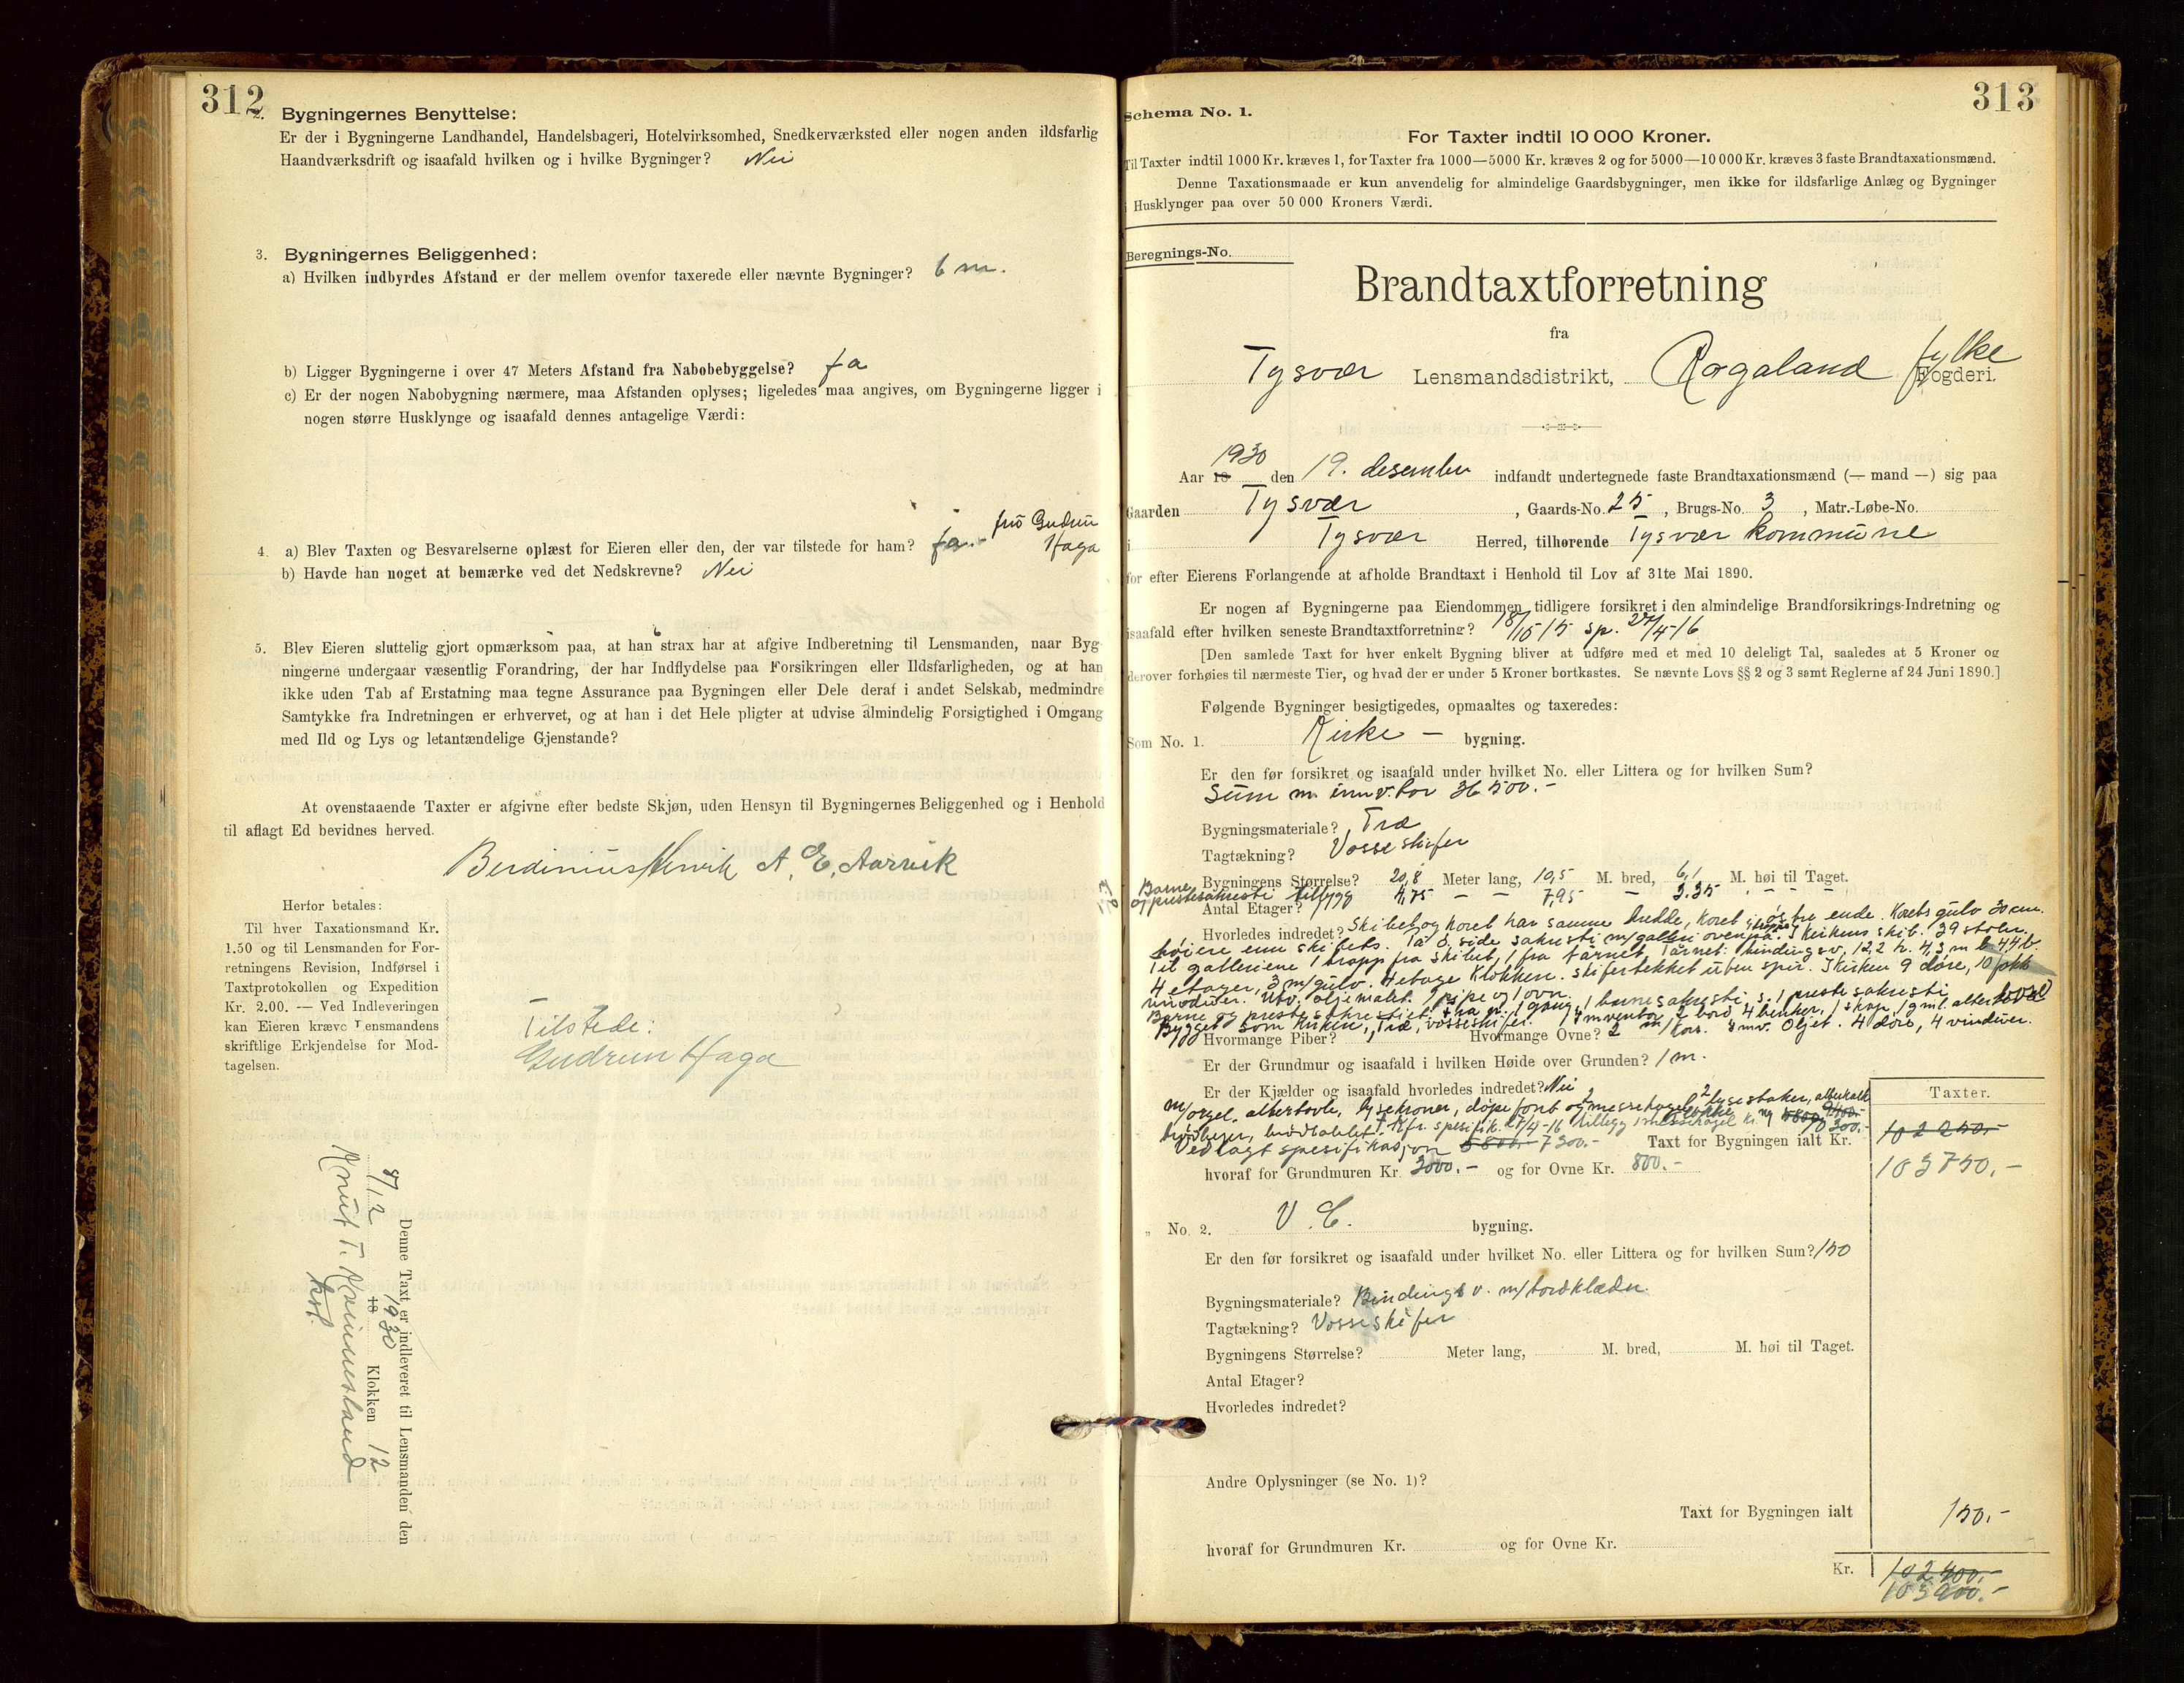 312
2. Bygningernes Benyttelse:
Er der i Bygningerne Landhandel, Handelsbageri, Hotelvirksomhed, Snedkerværksted eller nogen anden ildsfarlig
Haandværksdrift og isaafald hvilken og i hvilke Bygninger? Nei
3. Bygningernes Beliggenhed:
a) Hvilken indbyrdes Afstand er der mellem ovenfor taxerede eller nævnte Bygninger? 6 m.
b) Ligger Bygningerne i over 47 Meters Afstand fra Nabobebyggelse? Ja
c) Er der nogen Nabobygning nærmere, maa Afstanden oplyses; ligeledes maa angives, om Bygningerne ligger i
nogen større Husklynge og isaafald dennes antagelige Værdi:
4. a) Blev Taxten og Besvarelserne oplæst for Eieren eller den, der var tilstede for ham? Ja. frø Gudrun Haga
b) Havde han noget at bemærke ved det Nedskrevne? Nei
5. Blev Eieren sluttelig gjort opmærksom paa, at han strax har at afgive Indberetning til Lensmanden, naar Byg-
ningerne undergaar væsentlig Forandring, der har Indflydelse paa Forsikringen eller Ildsfarligheden, og at han
ikke uden Tab af Erstatning maa tegne Assurance paa Bygningen eller Dele deraf i andet Selskab, medmindre
Samtykke fra Indretningen er erhvervet, og at han i det Hele pligter at udvise almindelig Forsigtighed i Omgang
med Ild og Lys og letantændelige Gjenstande?
At ovenstaaende Taxter er afgivne efter bedste Skjøn, uden Hensyn til Bygningernes Beliggenhed og i Henhold
til aflagt Ed bevidnes herved.
Berdinius Hervik A. E. Aarvik
Herfor betales:
Til hver Taxationsmand Kr.
1.50 og til Lensmanden for For-
retningens Revision, Indførsel i
Taxtprotokollen og Expedition
Kr. 2.00. — Ved Indleveringen
kan Eieren kræve Lensmandens
skriftlige Erkjendelse for Mod-
tagelsen.
Tilstede:
Gudrun Haga
Denne Taxt er indleveret til Lensmanden den
1930 Klokken 12
Knut T.
313
Schema No. 1.
For Taxter indtil 10 000 Kroner.
Til Taxter indtil 1000 Kr. kræves 1, for Taxter fra 1000—5000 Kr. kræves 2 og for 5000—10 000 Kr. kræves 3 faste Brandtaxationsmænd.
Denne Taxationsmaade er kun anvendelig for almindelige Gaardsbygninger, men ikke for ildsfarlige Anlæg og Bygninger
i Husklynger paa over 50 000 Kroners Værdi.
Beregnings-No.
Brandtaxtforretning
fra
Tysvær Lensmandsdistrikt, Rogaland fylke Fogderi.
Aar 18 1930 den 19. desember indfandt undertegnede faste Brandtaxationsmænd (— mand —) sig paa
Gaarden Tysvær, Gaards-No. 25, Brugs-No. 3, Matr.-Løbe-No.
i Tysvær Herred, tilhørende Tysvær kommune
for efter Eierens Forlangende at afholde Brandtaxt i Henhold til Lov af 31te Mai 1890.
Er nogen af Bygningerne paa Eiendommen tidligere forsikret i den almindelige Brandforsikrings-Indretning og
isaafald efter hvilken seneste Brandtaxtforretning? 18/10 15 sp. 27/4 16
[Den samlede Taxt for hver enkelt Bygning bliver at udføre med et med 10 deleligt Tal, saaledes at 5 Kroner og
derover forhøies til nærmeste Tier, og hvad der er under 5 Kroner bortkastes. Se nævnte Lovs §§ 2 og 3 samt Reglerne af 24 Juni 1890.]
Følgende Bygninger besigtigedes, opmaaltes og taxeredes:
Som No. 1. Kirke — bygning.
Er den før forsikret og isaafald under hvilket No. eller Littera og for hvilken Sum?
Sum m innv.tor 36 500.-
Bygningsmateriale? Træ
Tagtækning? Vosseskifer
Bygningens Størrelse? 20,8 Meter lang, 10,5 M. bred, 6,1 M. høi til Taget.
Barne og prestesakresti tilbygg 4,75 — — 7,95 — 3.35
Antal Etager?
Hvorledes indredet? Skibet og koret har samme bredde, koret i østre ende. Korets gulv 30 cm.
høiere enn skibets. På s. side sakresti m/galleri ovenpå. I kirkens skib. 39 stoler.
Til galleriene 1 trapp fra skibet, 1 fra tårnet. Tårnet: bindingsv. 12,2 h. 4,3 m b. 4,4 b.
4 etager, 3 m/gulv. 4 etage klokken. Skifertekket uten spir. I kirken 9 døre, 10
vinduer. Utv. oljemalet. 1 pipe og 1 ovn.
Barne og prestesakrestiet 1 gang, 1 barnesakresti, s. 1 prestesakresti
Bygget som kirken, Træ, vosseskifer. Inventar 2 bord 4 benker, 1 skap, 1 gml. altertavle
Hvormange Piber? Hvormange Ovne? 2 Oljet. 4 døre, 4 vinduer.
Er der Grundmur og isaafald i hvilken Høide over Grunden? 1 m.
Er der Kjælder og isaafald hvorledes indredet? Nei
m/orgel, altertavle, lysekroner, døpefont og messehagel, 2 lysestaker, alterkalk
Vedlagt spesifikasjon 5800.- 7300.- Taxt for Bygningen ialt Kr.
Taxter.
102 250.-
103750.-
hvoraf for Grundmuren Kr. 3000.- og for Ovne Kr. 800.-
„ No. 2. V. C. bygning.
Er den før forsikret og isaafald under hvilket No. eller Littera og for hvilken Sum? 150
Bygningsmateriale? Bindings v. m/bordklæder.
Tagtækning? Vosseskifer
Bygningens Størrelse? Meter lang, M. bred, M. høi til Taget.
Antal Etager?
Hvorledes indredet?
Andre Oplysninger (se No. 1)?
Taxt for Bygningen ialt 150.-
hvoraf for Grundmuren Kr. og for Ovne Kr.
Kr. 102 400.-
103900.-